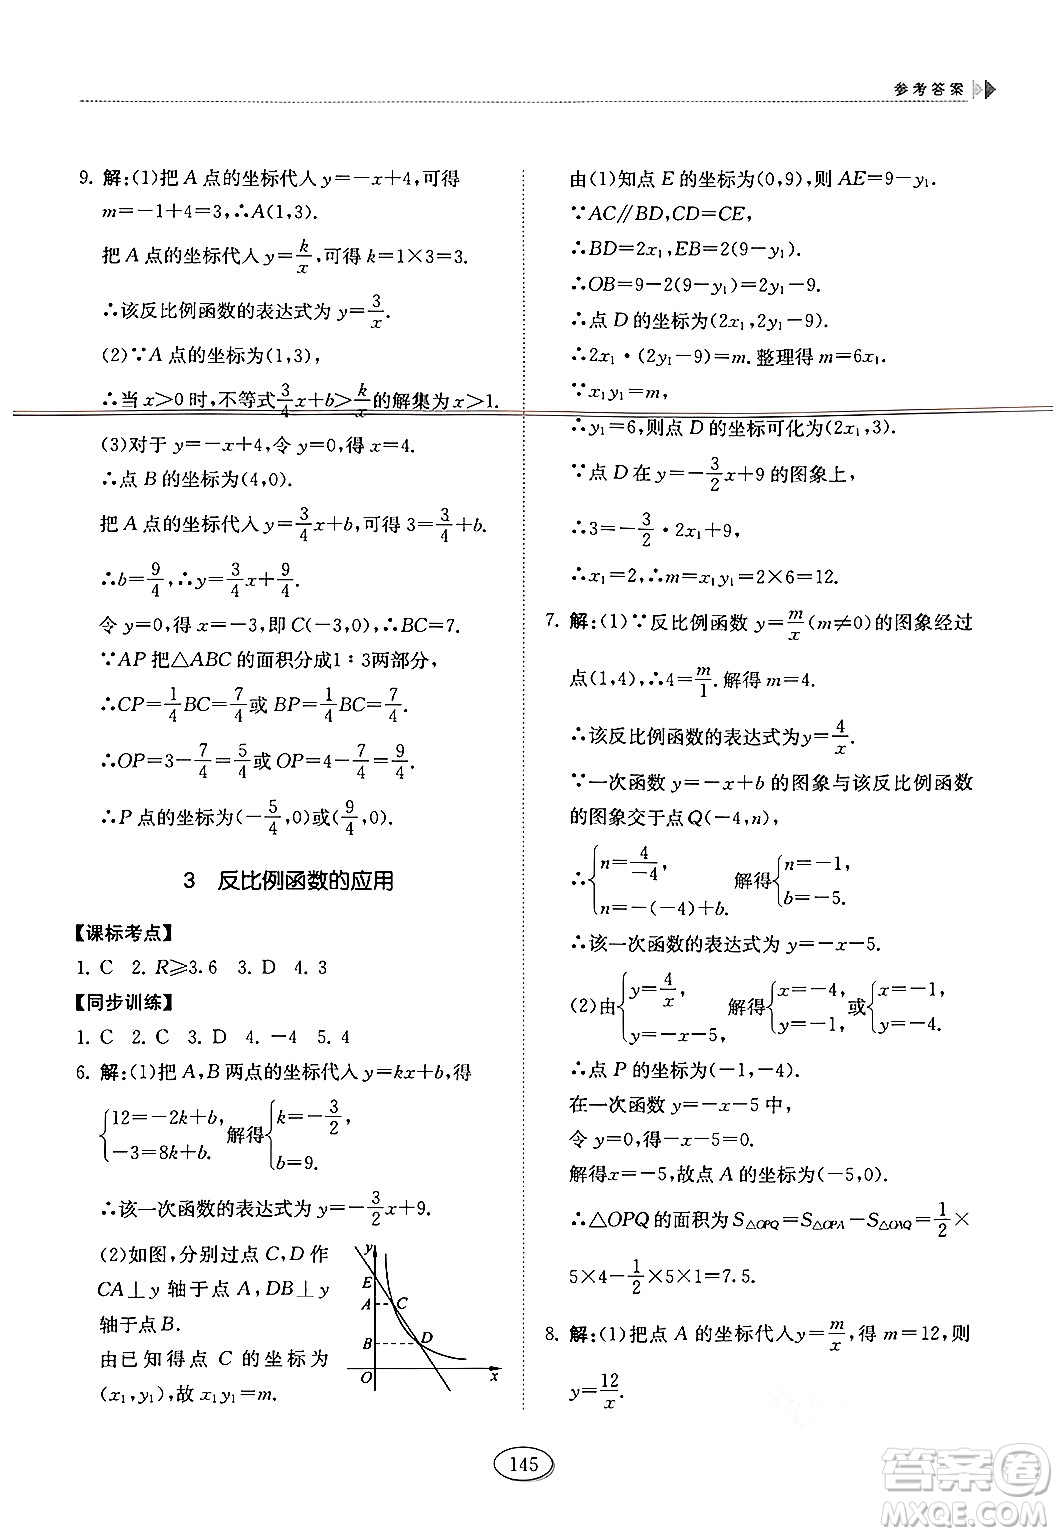 参考答案
9. 解:(1)把 A 点的坐标代入 y=-x+4,可得
m=-1+4=3,∴A(1,3).
把 A 点的坐标代入 y=k/x,可得 k=1×3=3.
∴该反比例函数的表达式为 y=3/x.
(2)∵A 点的坐标为(1,3),
∴当 x>0 时,不等式3/4x+b>k/x的解集为 x>1.
(3)对于 y=-x+4,令 y=0,得 x=4.
∴点 B 的坐标为(4,0).
把 A 点的坐标代入 y=3/4x+b,可得 3=3/4+b.
∴b=9/4,∴y=3/4x+9/4.
令 y=0,得 x=-3,即 C(-3,0),∴BC=7.
∵AP 把△ABC 的面积分成1∶3两部分,
∴CP=1/4BC=7/4或 BP=1/4BC=7/4.
∴OP=3-7/4=5/4或 OP=4-7/4=9/4.
∴P 点的坐标为(-5/4,0)或(9/4,0).
3 反比例函数的应用
【课标考点】
1. C 2. R≥3.6 3. D 4. 3
【同步训练】
1. C 2. C 3. D 4. -4 5. 4
6. 解:(1)把 A,B 两点的坐标代入 y=kx+b,得
{12=-2k+b, -3=8k+b. 解得{k=-3/2, b=9.
∴该一次函数的表达式为 y=-3/2x+9.
(2)如图,分别过点 C,D 作
CA⊥y 轴于点 A,DB⊥y
轴于点 B.
由已知得点 C 的坐标为
(x₁,y₁),故 x₁y₁=m.
y
E
A
C
B
D
O
x
由(1)知点 E 的坐标为(0,9),则 AE=9-y₁.
∵AC∥BD,CD=CE,
∴BD=2x₁,EB=2(9-y₁).
∴OB=9-2(9-y₁)=2y₁-9.
∴点 D 的坐标为(2x₁,2y₁-9).
∴2x₁·(2y₁-9)=m.整理得 m=6x₁.
∵x₁y₁=m,
∴y₁=6,则点 D 的坐标可化为(2x₁,3).
∵点 D 在 y=-3/2x+9 的图象上,
∴3=-3/2·2x₁+9,
∴x₁=2,∴m=x₁y₁=2×6=12.
7. 解:(1)∵反比例函数 y=m/x(m≠0)的图象经过
点(1,4),∴4=m/1.解得 m=4.
∴该反比例函数的表达式为 y=4/x.
∵一次函数 y=-x+b 的图象与该反比例函数
的图象交于点 Q(-4,n),
∴{n=4/-4, n=-(-4)+b. 解得{n=-1, b=-5.
∴该一次函数的表达式为 y=-x-5.
(2)由{y=4/x, y=-x-5, 解得{x=-4, y=-1, 或{x=-1, y=-4.
∴点 P 的坐标为(-1,-4).
在一次函数 y=-x-5 中,
令 y=0,得-x-5=0.
解得x=-5,故点 A 的坐标为(-5,0).
∴△OPQ 的面积为 S△OPQ=S△OPA-S△OAQ=1/2×
5×4-1/2×5×1=7.5.
8. 解:(1)把点 A 的坐标代入y=m/x,得 m=12,则
y=12/x.
145
答案圈
MXQE.COM